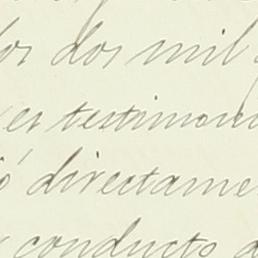 los dos mil
es testimoni
ó directame
conducto a